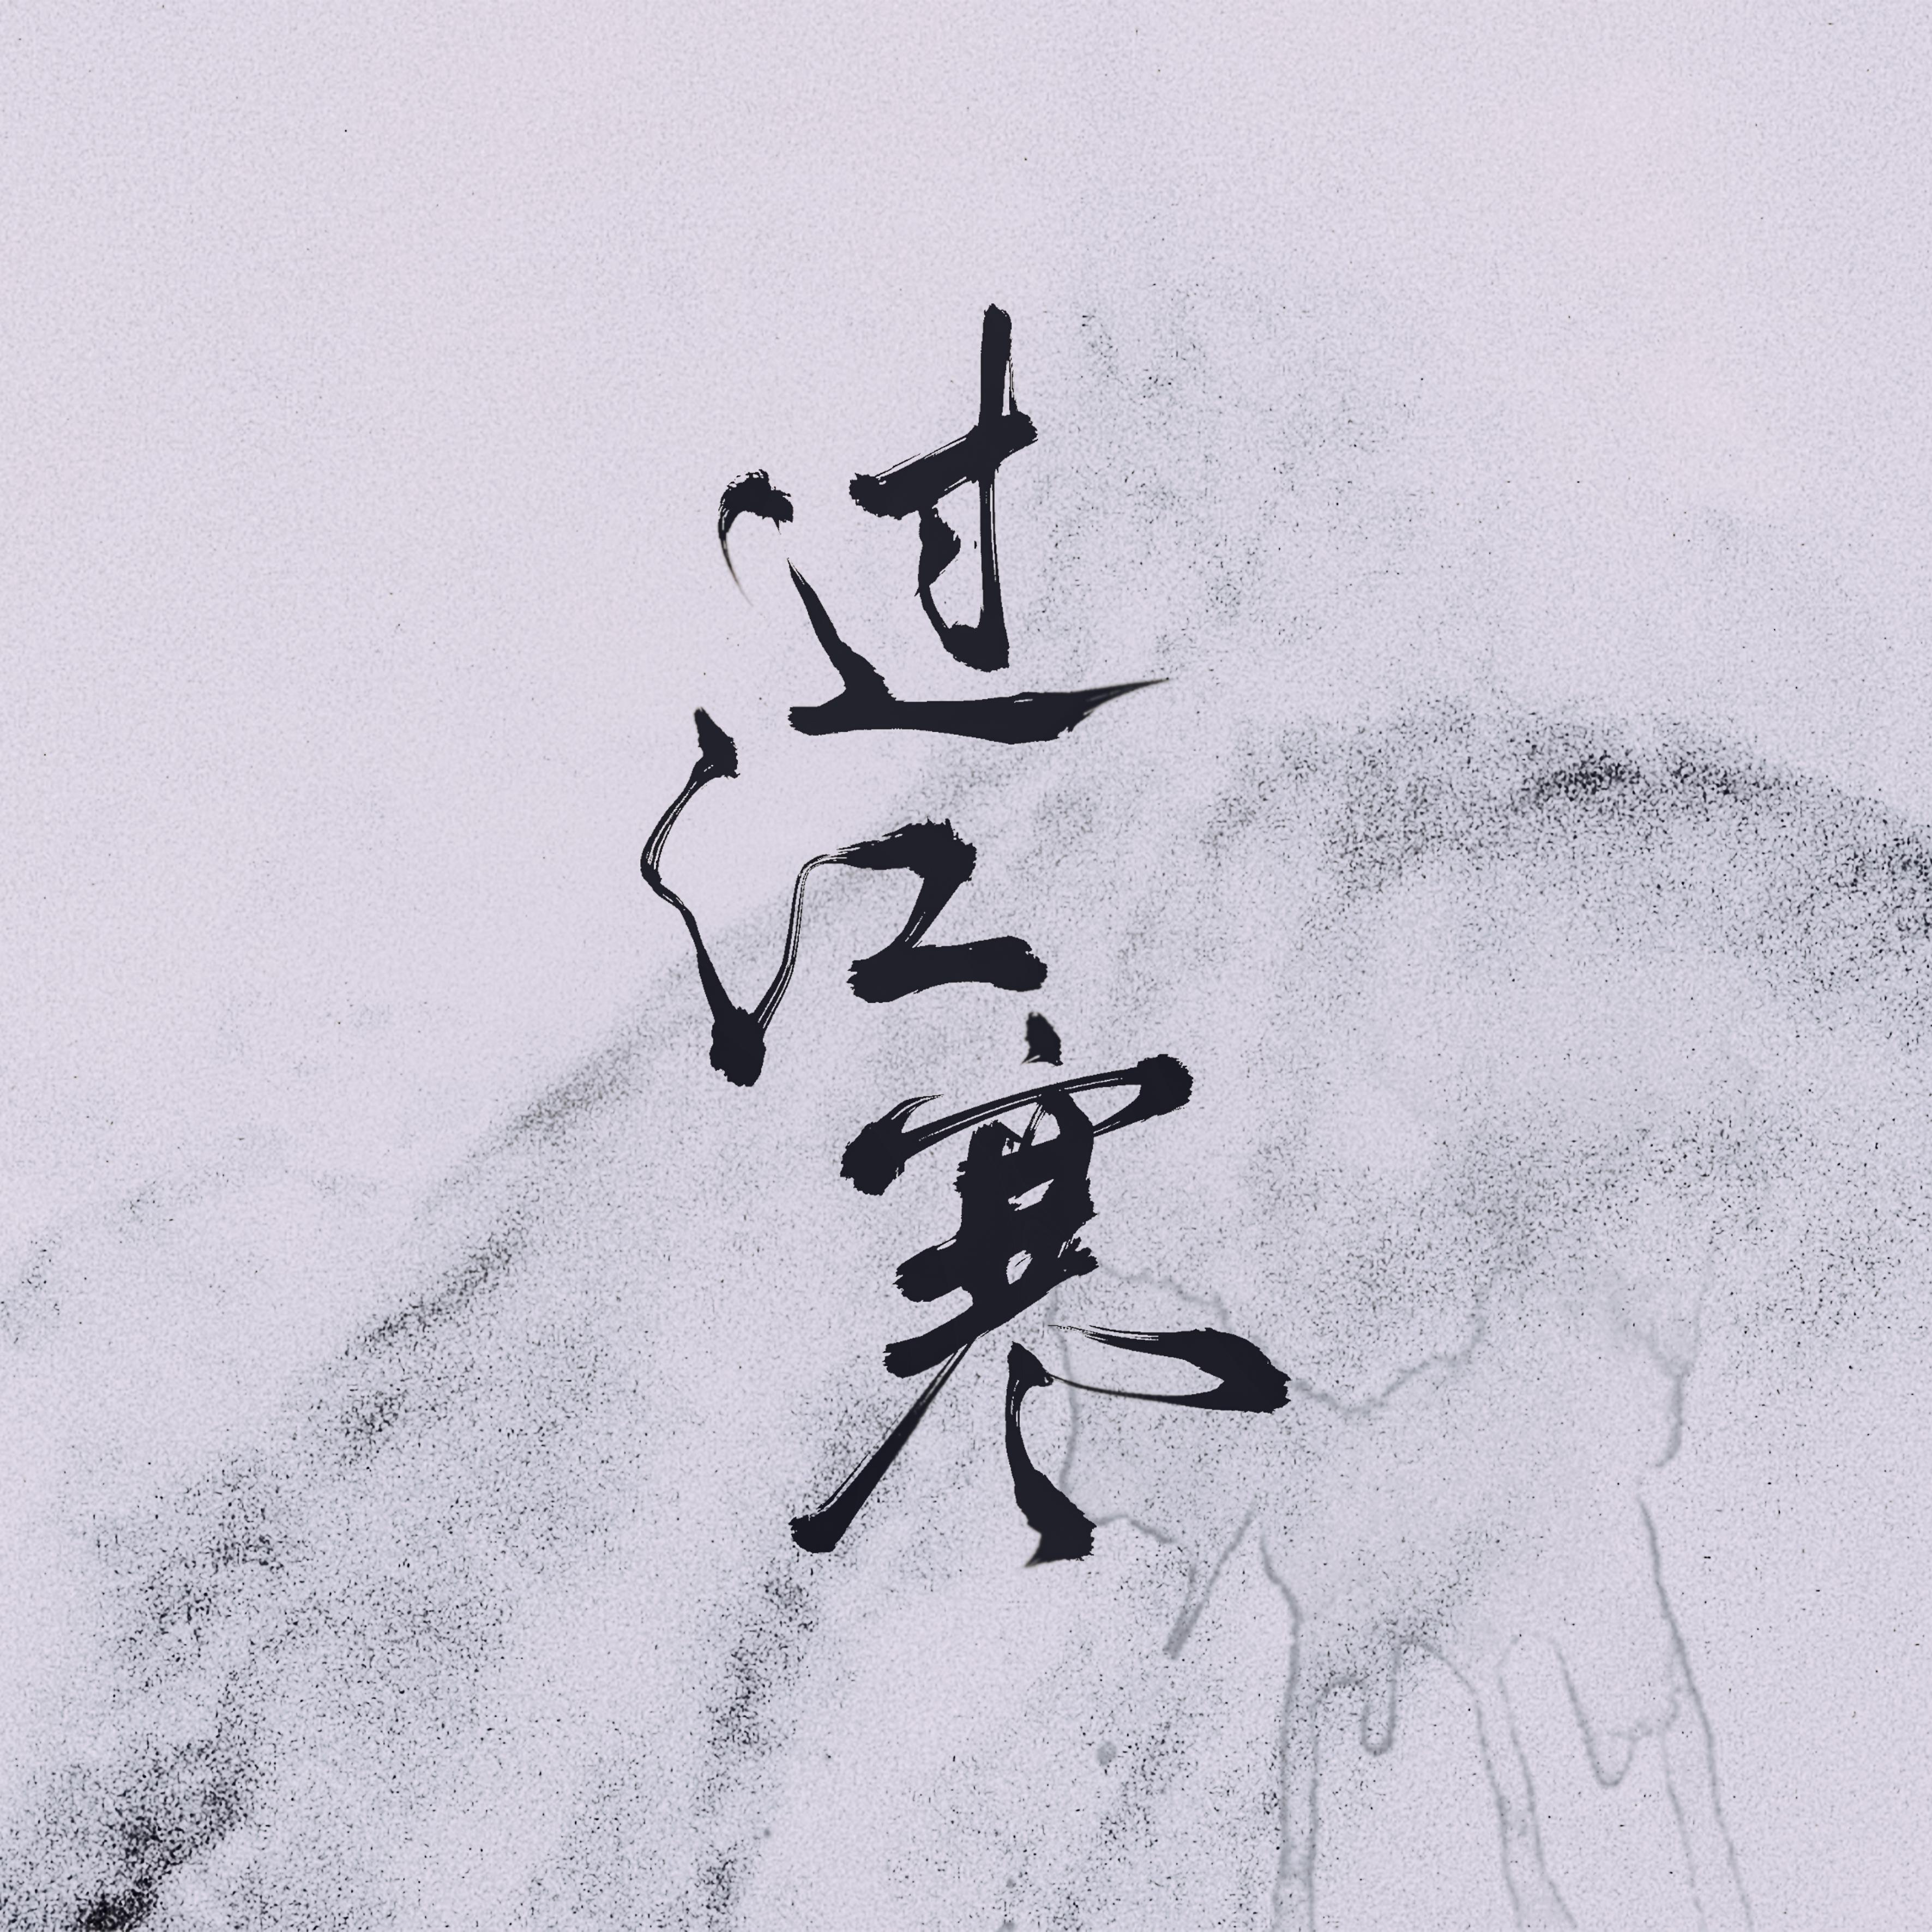 过江寒